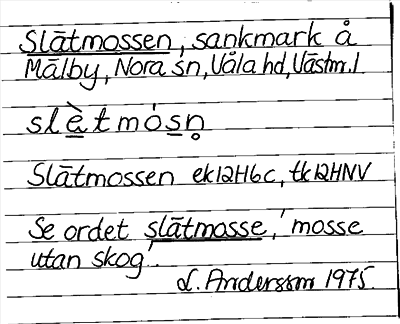 Slātmossen, sankmark å
Mālby, Nora sn, Våla hd, Västm.l
slè̲tmós̲n̥
Slātmossen ek12H6c, tk12HNV
Se ordet slātmosse, 'mosse
utan skog'.
L. Andersson 1975